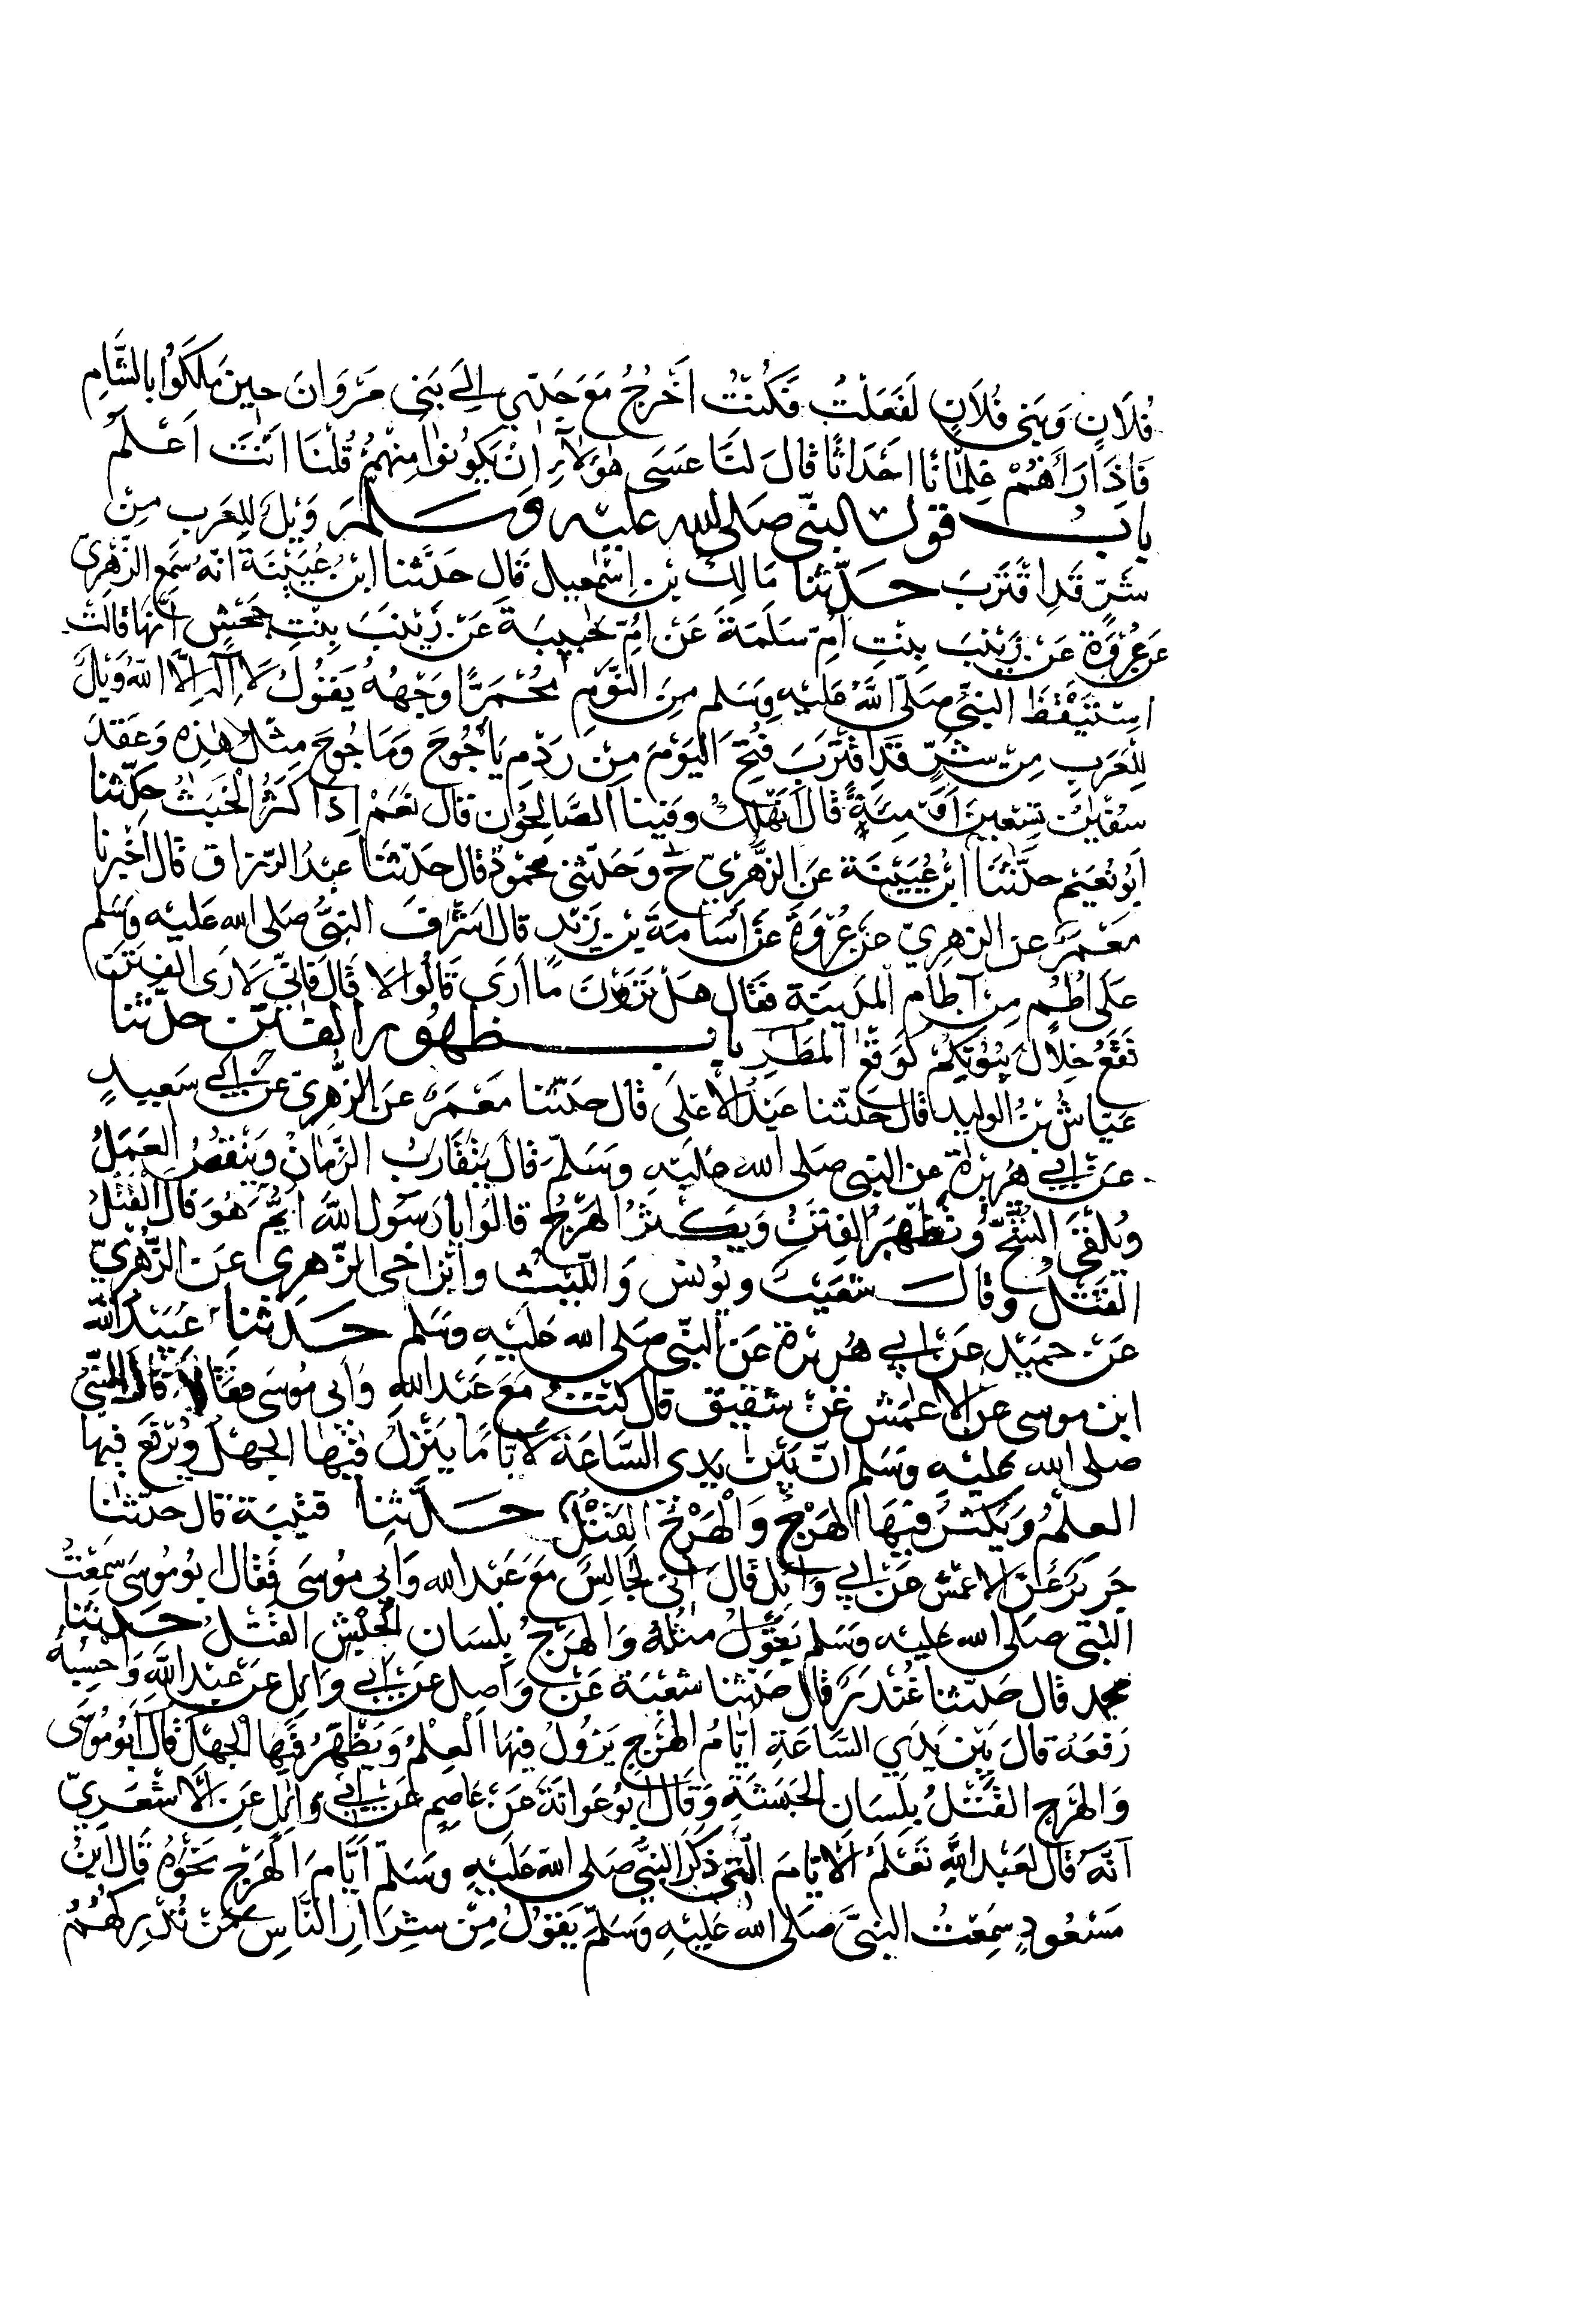 فُلَانٍ وَبَنِي فُلَانٍ لَفَعَلْتُ فَكُنْتُ أَخْرُجُ مَعَ جَدِّي إِلَى بَنِي مَرْوَانَ حِينَ مَلَكُوْا بِالشَّامِ
فَإِذَا رَآهُمْ غِلْمَانًا أَحْدَاثًا قَالَ لَنَا عَسَى هَؤُلَاءِ أَنْ يَكُونُوا مِنْهُمْ قُلْنَا أَنْتَ أَعْلَمُ
باب قول النبي صلى الله عليه وسلم وَيْلٌ لِلعَرَبِ مِنْ
شَرٍّ قَدِ اقْتَرَبَ حدثنا مَالِكُ بْنُ إِسْمَعِيل قَالَ حَدَّثَنَا ابْنُ عُيَيْنَةَ أَنَّهُ سَمِعَ الزُّهْرِيَّ
عَنْ عُرْوَةَ عَنْ زَيْنَبَ بِنْتِ أُمِّ سَلَمَةَ عَنْ أُمِّ حَبِيبَةَ عَنْ زَيْنَبَ بِنْتِ جَحْشٍ أَنَّهَا قَالَتْ
اسْتَيْقَظَ النَّبِيُّ صَلَّى اللَّهُ عَلَيْهِ وَسَلَّمَ مِنَ النَّوْمِ مُحْمَرًّا وَجْهُهُ يَقُولُ لَا إِلَهَ إِلَّا اللهُ وَيْلٌ
لِلْعَرَبِ مِنْ شَرٍّ قَدِ اقْتَرَبَ فُتِحَ الْيَوْمَ مِنْ رَدْمِ يَأْجُوجَ وَمَاجُوجَ مِثْلُ هَذِهِ وَعَقَدَ
سُفْيَنُ تِسْعِينَ أَوْ مِئَةً قَالَ أَنَهْلِكُ وَفِينَا الصَّالِحُونَ قَالَ نَعَمْ إِذَا كَثُرَ الْخَبَثُ حَدَّثَنَا
أَبُو نُعَيْمٍ حَدَّثَنَا ابْنُ عُيَيْنَةَ عَنِ الزُّهْرِيِّ ح وَحَدَّثَنِي مَحْمُودٌ قَالَ حَدَّثَنَا عَبْدُ الرَّزَّاقِ قَالَ أَخْبَرَنَا
مَعْمَرٌ عَنِ الزُّهْرِيِّ عَنْ عُرْوَةَ عَنْ أُسَامَةَ بْنِ زَيْدٍ قَالَ أَشْرَفَ النَّبِيُّ صَلَّى اللهُ عَلَيْهِ وَسَلَّمَ
عَلَى أُطُمٍ مِنْ آطَامِ الْمَدِينَةِ فَقَالَ هَلْ تَرَوْنَ مَا أَرَى قَالُوا لَا قَالَ فَإِنِّي لَأَرَى الْفِتَنَ
تَقَعُ خِلَالَ بُيُوتِكُمْ كَوَقْعِ الْمَطَرِ باب ظهور الفتن حدثنا
عَيَّاشُ بْنُ الْوَلِيدِ قَالَ حَدَّثَنَا عَبْدُ الْأَعْلَى قَالَ حَدَّثَنَا مَعْمَرٌ عَنِ الزُّهْرِيِّ عَنْ أبي سَعِيدٍ
عَنْ أَبِي هُرَيْرَةَ عَنِ النَّبِيِّ صَلَّى اللهُ عَلَيْهِ وَسَلَّمَ قَالَ يَتَقَارَبُ الزَّمَانُ وَيَنْقُصُ الْعَمَلُ
وَيُلْقَى الشُّحُّ وَتَظْهَرُ الْفِتَنُ وَيَكْثُرُ الْهَرْجُ قَالُوا يَا رَسُولَ اللَّهِ أَيُّمَ هُوَ قَالَ الْقَتْلُ
الْقَتْلُ وَقَالَ شُعَيْبٌ وَيُونُسُ وَاللَّيْثُ وَابْنُ أَخِي الزُّهْرِيِّ عَنِ الزُّهْرِيِّ
عَنْ حُمَيْدٍ عَنْ أَبِي هُرَيْرَةَ عَنِ النَّبِيِّ صَلَّى اللهُ عَلَيْهِ وَسَلَّمَ حَدَّثَنَا عُبَيْدُ اللَّهِ
ابن موسى عَنِ الْأَعْمَشِ عَنْ شَقِيقٍ قَالَ كُنْتُ مَعَ عَبْدِ اللهِ وَأَبِي مُوسَى فَقَالَا قَالَ النَّبِيُّ
صلى الله عليه وَسَلَّمَ إِنَّ بَيْنَ يَدَيِ السَّاعَةِ لَأَيَّامًا يَنْزِلُ فِيهَا الْجَهْلُ وَيُرْفَعُ فِيهَا
الْعِلْمُ وَيَكْثُرُ فِيهَا الْهَرْجُ وَالْهَرْجُ الْقَتْلُ حَدَّثَنَا قُتَيْبَةُ قَالَ حَدَّثَنَا
جَرِيرٌ عَنِ الْأَعْمَشِ عَنْ أَبِي وَائِلٍ قَالَ إِنِّي لَجَالِسٌ مَعَ عَبْدِ اللهِ وَأَبِي مُوسَى فَقَالَ أَبُو مُوسَى سَمِعْتُ
النَّبِيَّ صَلَّى اللهُ عَلَيْهِ وَسَلَّمَ يَقُولُ مِثْلَهُ وَالْهَرْجُ بِلِسَانِ الْحَبَشِ الْقَتْلُ حَدَّثَنَا
مُحَمَّد قَالَ حَدَّثَنَا غُنْدَرٌ قَالَ حَدَّثَنَا شُعْبَةُ عَنْ وَاصِلٍ عَنْ أَبِي وَائِلٍ عَنْ عَبْدِ اللَّهِ وَأَحْسِبُهُ
رَفَعَهُ قَالَ بَيْنَ يَدَيِ السَّاعَةِ أَيَّامُ الْهَرْجِ يَزُولُ فِيهَا الْعِلْمُ وَيَظْهَرُ فِيهَا الْجَهْلُ قَالَ أَبُو مُوسَى
وَالْهَرْجُ الْقَتْلُ بِلِسَانِ الْحَبَشَةِ وَقَالَ أَبُو عَوَانَةَ عَنْ عَاصِمٍ عَنْ أَبِي وَائِلٍ عَنِ الْأَشْعَرِيِّ
أَنَّهُ قَالَ لِعَبْدِ اللَّهِ تَعْلَمُ الْأَيَّامَ الَّتِي ذَكَرَ النَّبِيُّ صَلَّى اللهُ عَلَيْهِ وَسَلَّمَ أَيَّامَ الْهَرْجِ نَحْوَهُ قَالَ ابْنُ
مَسْعُودٍ سَمِعْتُ النَّبِيَّ صَلَّى اللهُ عَلَيْهِ وَسَلَّمَ يَقُولُ مِنْ شِرَارِ النَّاسِ مَنْ تُدْرِكُهُمُ